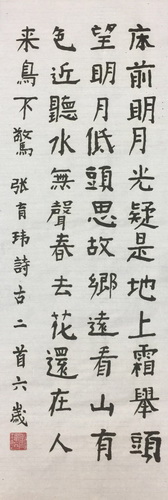 床前明月光疑是地上霜舉頭
望明月低頭思故鄉遠看山有
色近聽水無聲春去花還在人
來鳥不驚 張育瑋詩古二首六歲